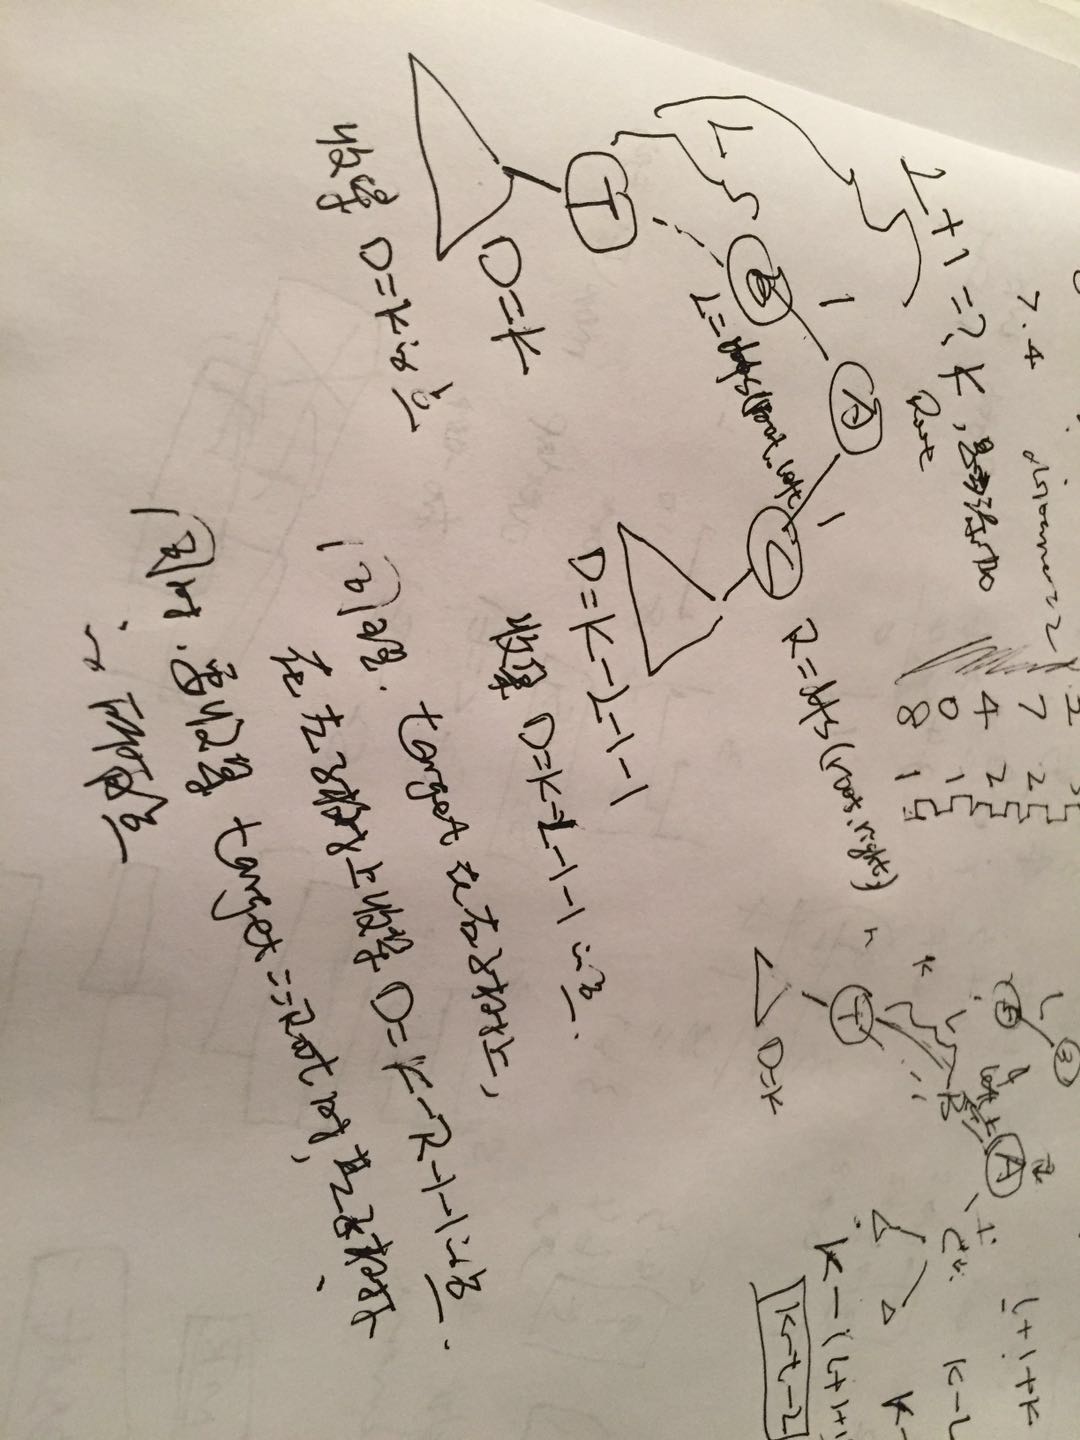 7.4 distance=2
2
7 2
4 2
0 1
8 1
L+1=?K,是否添加
Root
A
1 1
B
C
L
L=dfs(root.left
R=dfs(root.right)
T
D=K
收集 D=K的点
D=K-L-1-1
收集 D=K-L-1-1的点.
同理. target在右子树上,
在左子树上收集 D=K-R-1-1的点.
同时.要收集 target==Root时,其子树下
的所有点
3
5
L
A
left
B
C
L
K
T
D=K
L+1+K
K-L
K-
K-(L+1+1
K-L-2